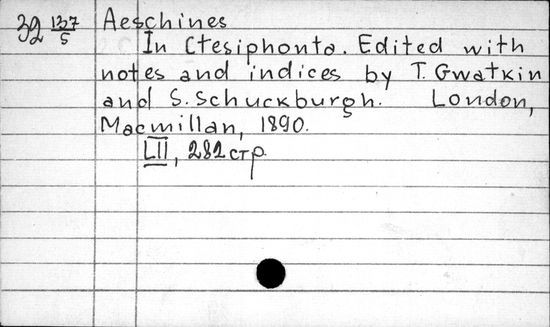 32 137/5 Aeschines
In Ctesiphonta. Edited with
notes and indices by T. Gwatkin
and S. Schuckburgh. London,
Macmillan, 1890.
LII, 282 стр.